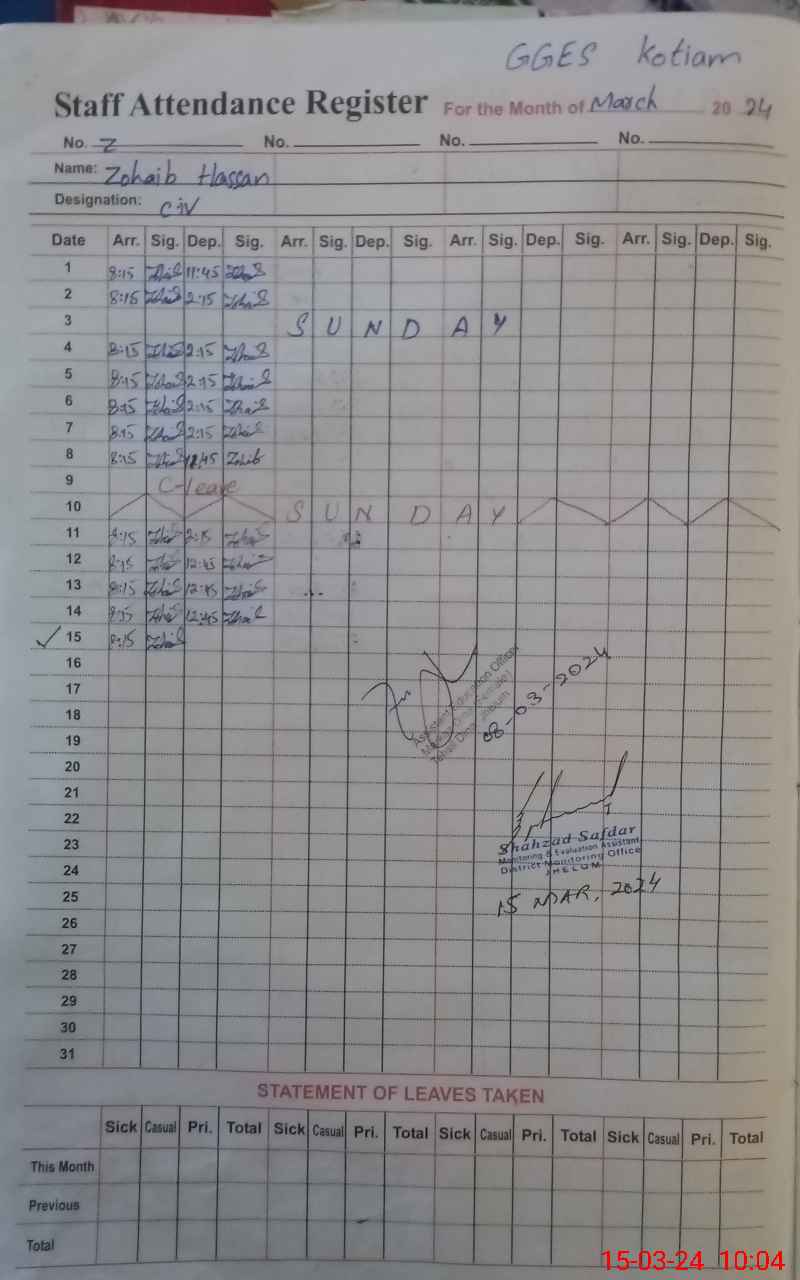 GGES Kotiam
Staff Attendance Register For the Month of March 2024
No. 2 No. No. No.
Name: Zohaib Hassan
Designation: CIV
Date Arr. Sig. Dep. Sig. Arr. Sig. Dep. Sig. Arr. Sig. Dep. Sig. Arr. Sig. Dep. Sig.
1 8:15 11:45
2 8:15 2:15
3 S U N D A Y
4 8:15 2:15
5 8:15 2:15
6 8:15 2:15
7 8:15 2:15
8 8:15 12:45 Zohaib
9 C-leave
10 S U N D A Y
11 8:15 2:15
12 8:15 12:45
13 8:15 12:45
14 8:15 12:45
✓ 15 8:15
16
17
18
19
Assistant Education Officer
08-03-2024
20
21
22
23
24
Shahzad Safdar
Monitoring & Evaluation Assistant
District Monitoring Office
JHELUM
15 MAR, 2024
25
26
27
28
29
30
31
STATEMENT OF LEAVES TAKEN
Sick Casual Pri. Total Sick Casual Pri. Total Sick Casual Pri. Total Sick Casual Pri. Total
This Month
Previous
Total
15-03-24 10:04